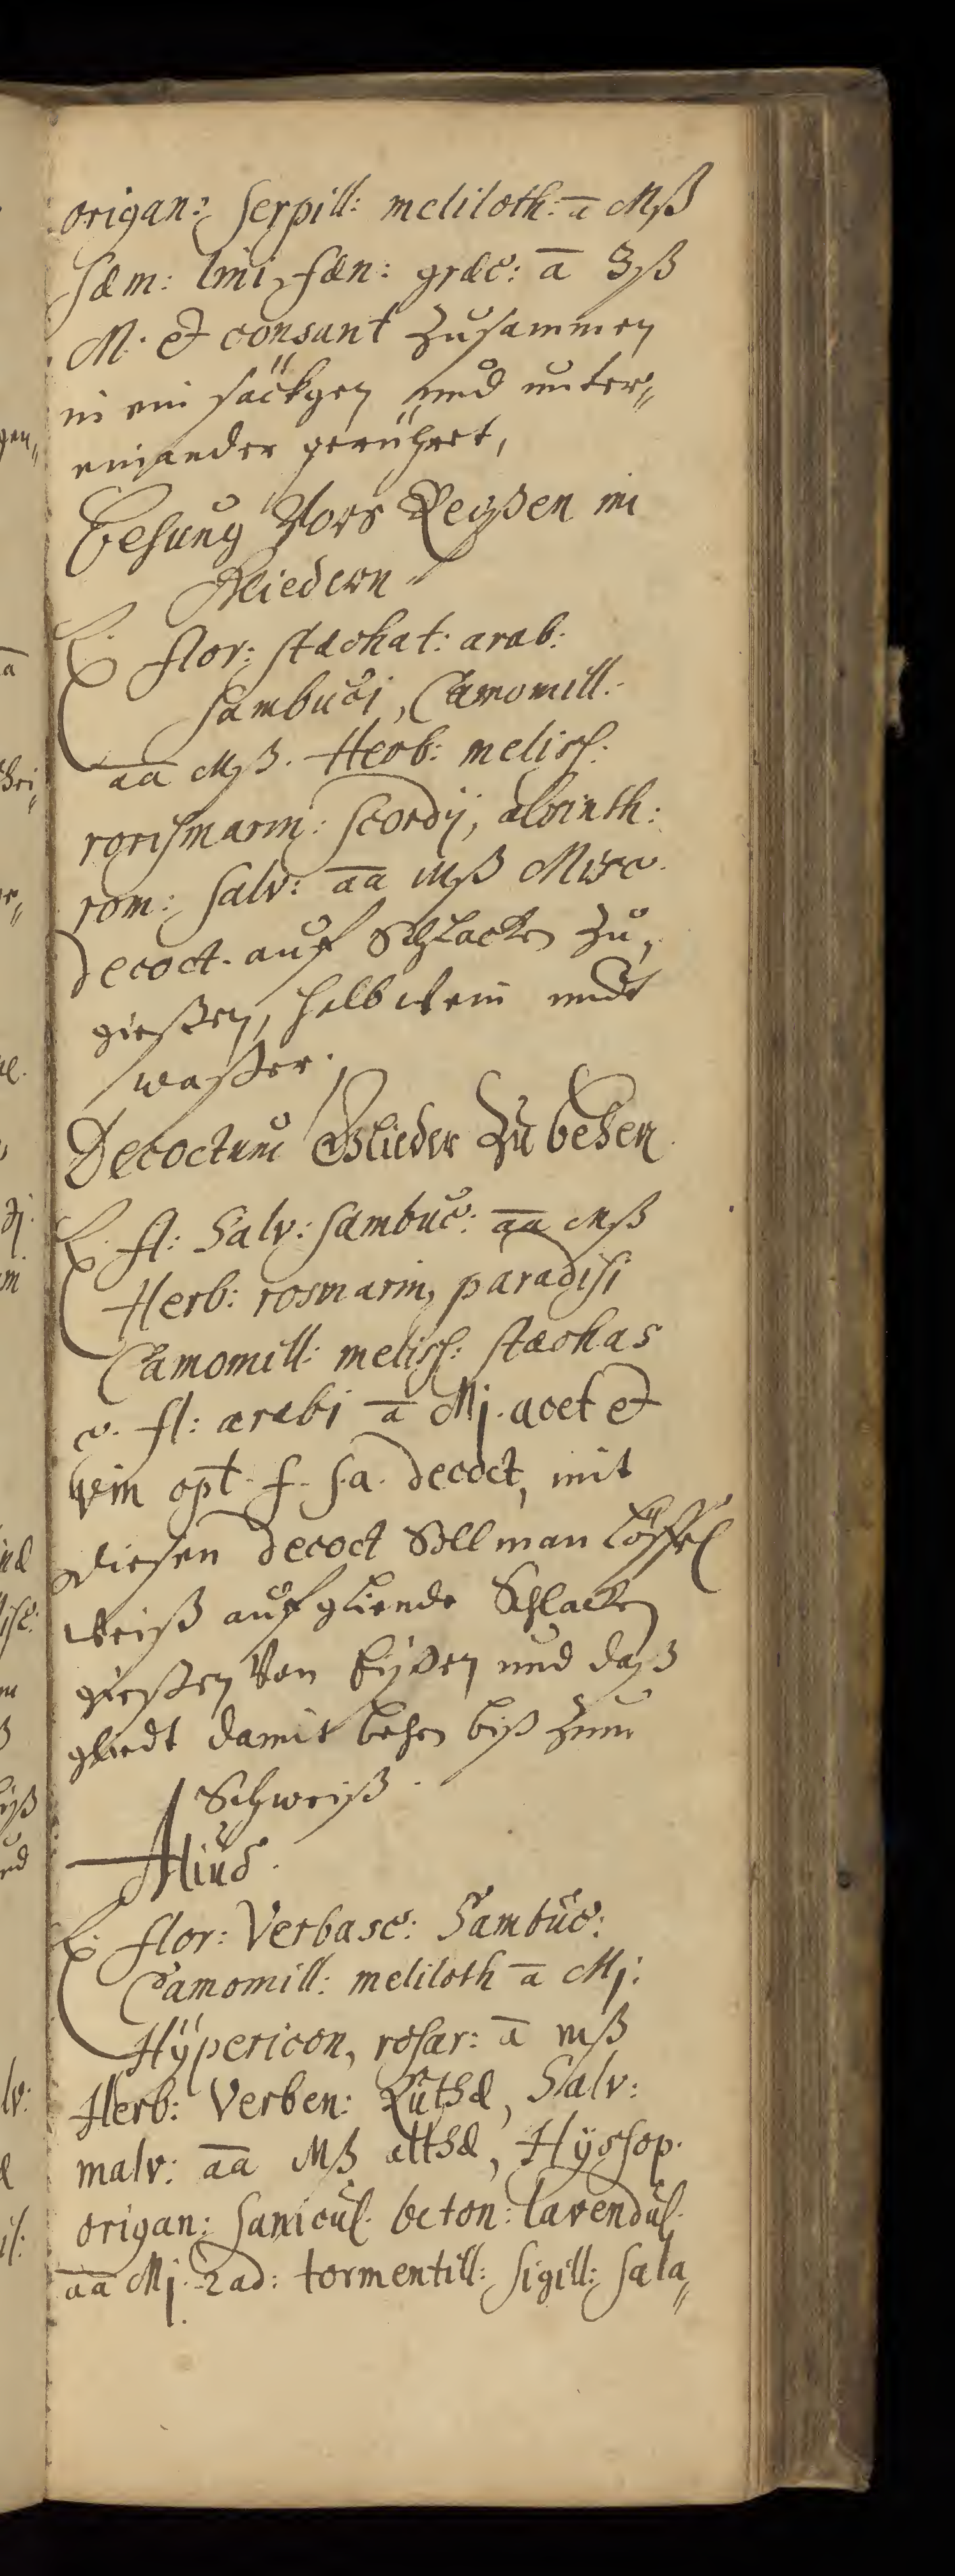 origan: serpill: meliloth: ā Mß
sæm: lini, fæn: græc: ā ʒß
M. et consant zusammen
in ein säckgen und unter„
einander gerühret,
Behung Vors Reyßen in
Gliedern
℞. flor: stæchat: arab:
sambuci, Camomill:
āā Mß. Herb: meliss:
rorismarin: scordÿ, absinth:
rom: salv: āā Mß Misc.
decoct. auf Schlacken zu,
gießen, halb wein undt
waßer.
Decoctum Glieder zu behen
℞. fl: Salv: sambuc: āā Mß
Herb: rosmarin, paradisi
Camomill: meliss: stæchas
c. fl: arabi ā Mj. acet et
vin opt. f. s.a. decoct, mit
diesen decoct Soll man löffel
weiß auf gliende Schlacken
gießen Von Eyßen und daß
gliedt damit behen biß zum
Schweiß.
Aliud.
℞. flor: Verbasc: Sambuc:
Camomill: meliloth ā Mj.
Hÿpericon, rosar: ā mß
Herb: Verben: Ruthæ, Salv:
malv: āā Mß althæ, Hÿssop.
origan: sanicul. beton: lavendul.
āā Mj. Rad: tormentill: sigill: sala„